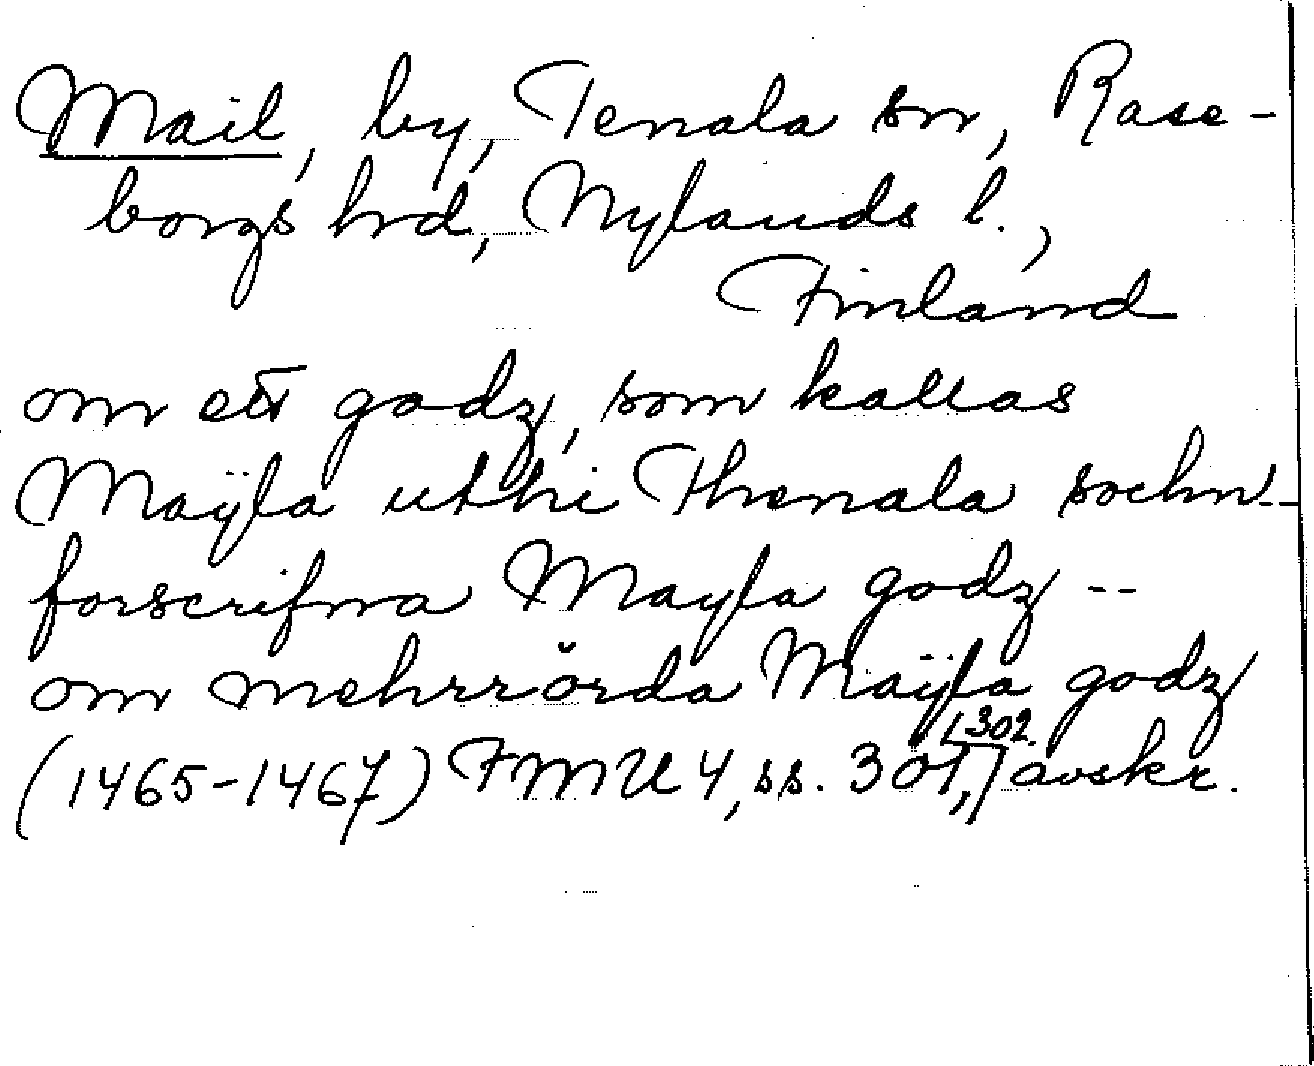 Mail, by, Tenala sn, Rase-
borgs hrd, Nylands l.,
Finland
om ett godz, som kallas
Maÿla uthi Thenala sochn --
forscrifna Mayla godz --
om mehrrörda Maÿla godz
(1465-1467) FMU 4, ss. 301, 302. avskr.